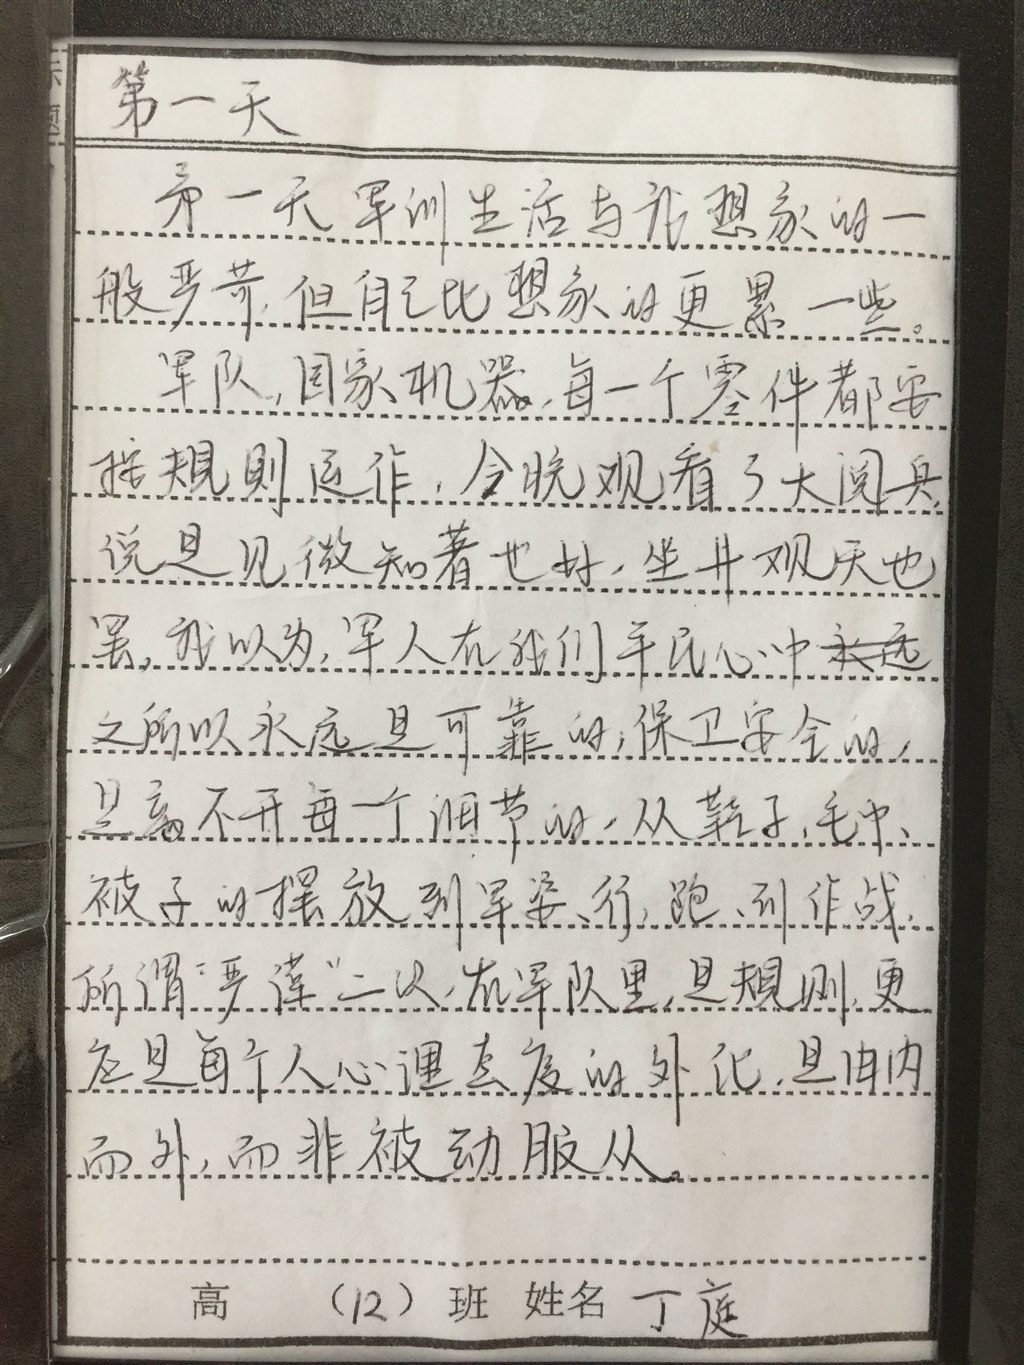 标题
第一天
第一天军训生活与我想象的一
般严苛,但自己比想象的更累一些。
军队,国家机器,每一个零件都要
按规则运作,今晚观看了大阅兵,
说是见微知著也好,坐井观天也
罢,我以为,军人在我们平民心中永远
之所以永远是可靠的,保卫安全的,
是离不开每一个细节的,从鞋子、毛巾、
被子的摆放到军姿、行、跑、到作战,
所谓“严谨”二次,在军队里,是规则,更
应是每个人心理态度的外化,是由内
而外,而非被动服从。
高 (12) 班 姓名 丁庭